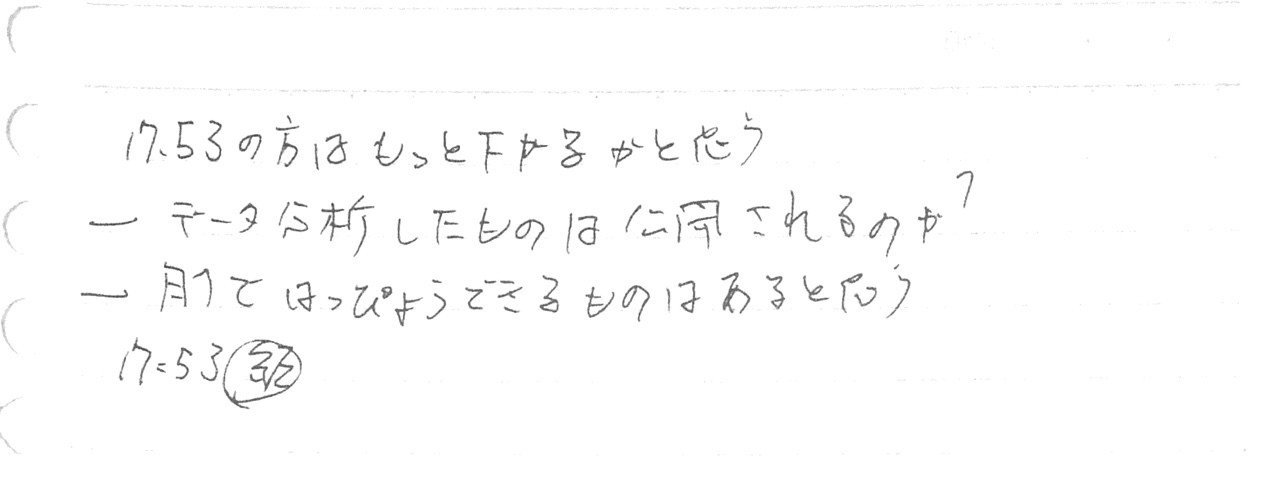 17.53の方はもっと下がるかと思う
ー データ分析したものは公開されるのか?
ー 別てはっぴょうできるものはあると思う
17:53